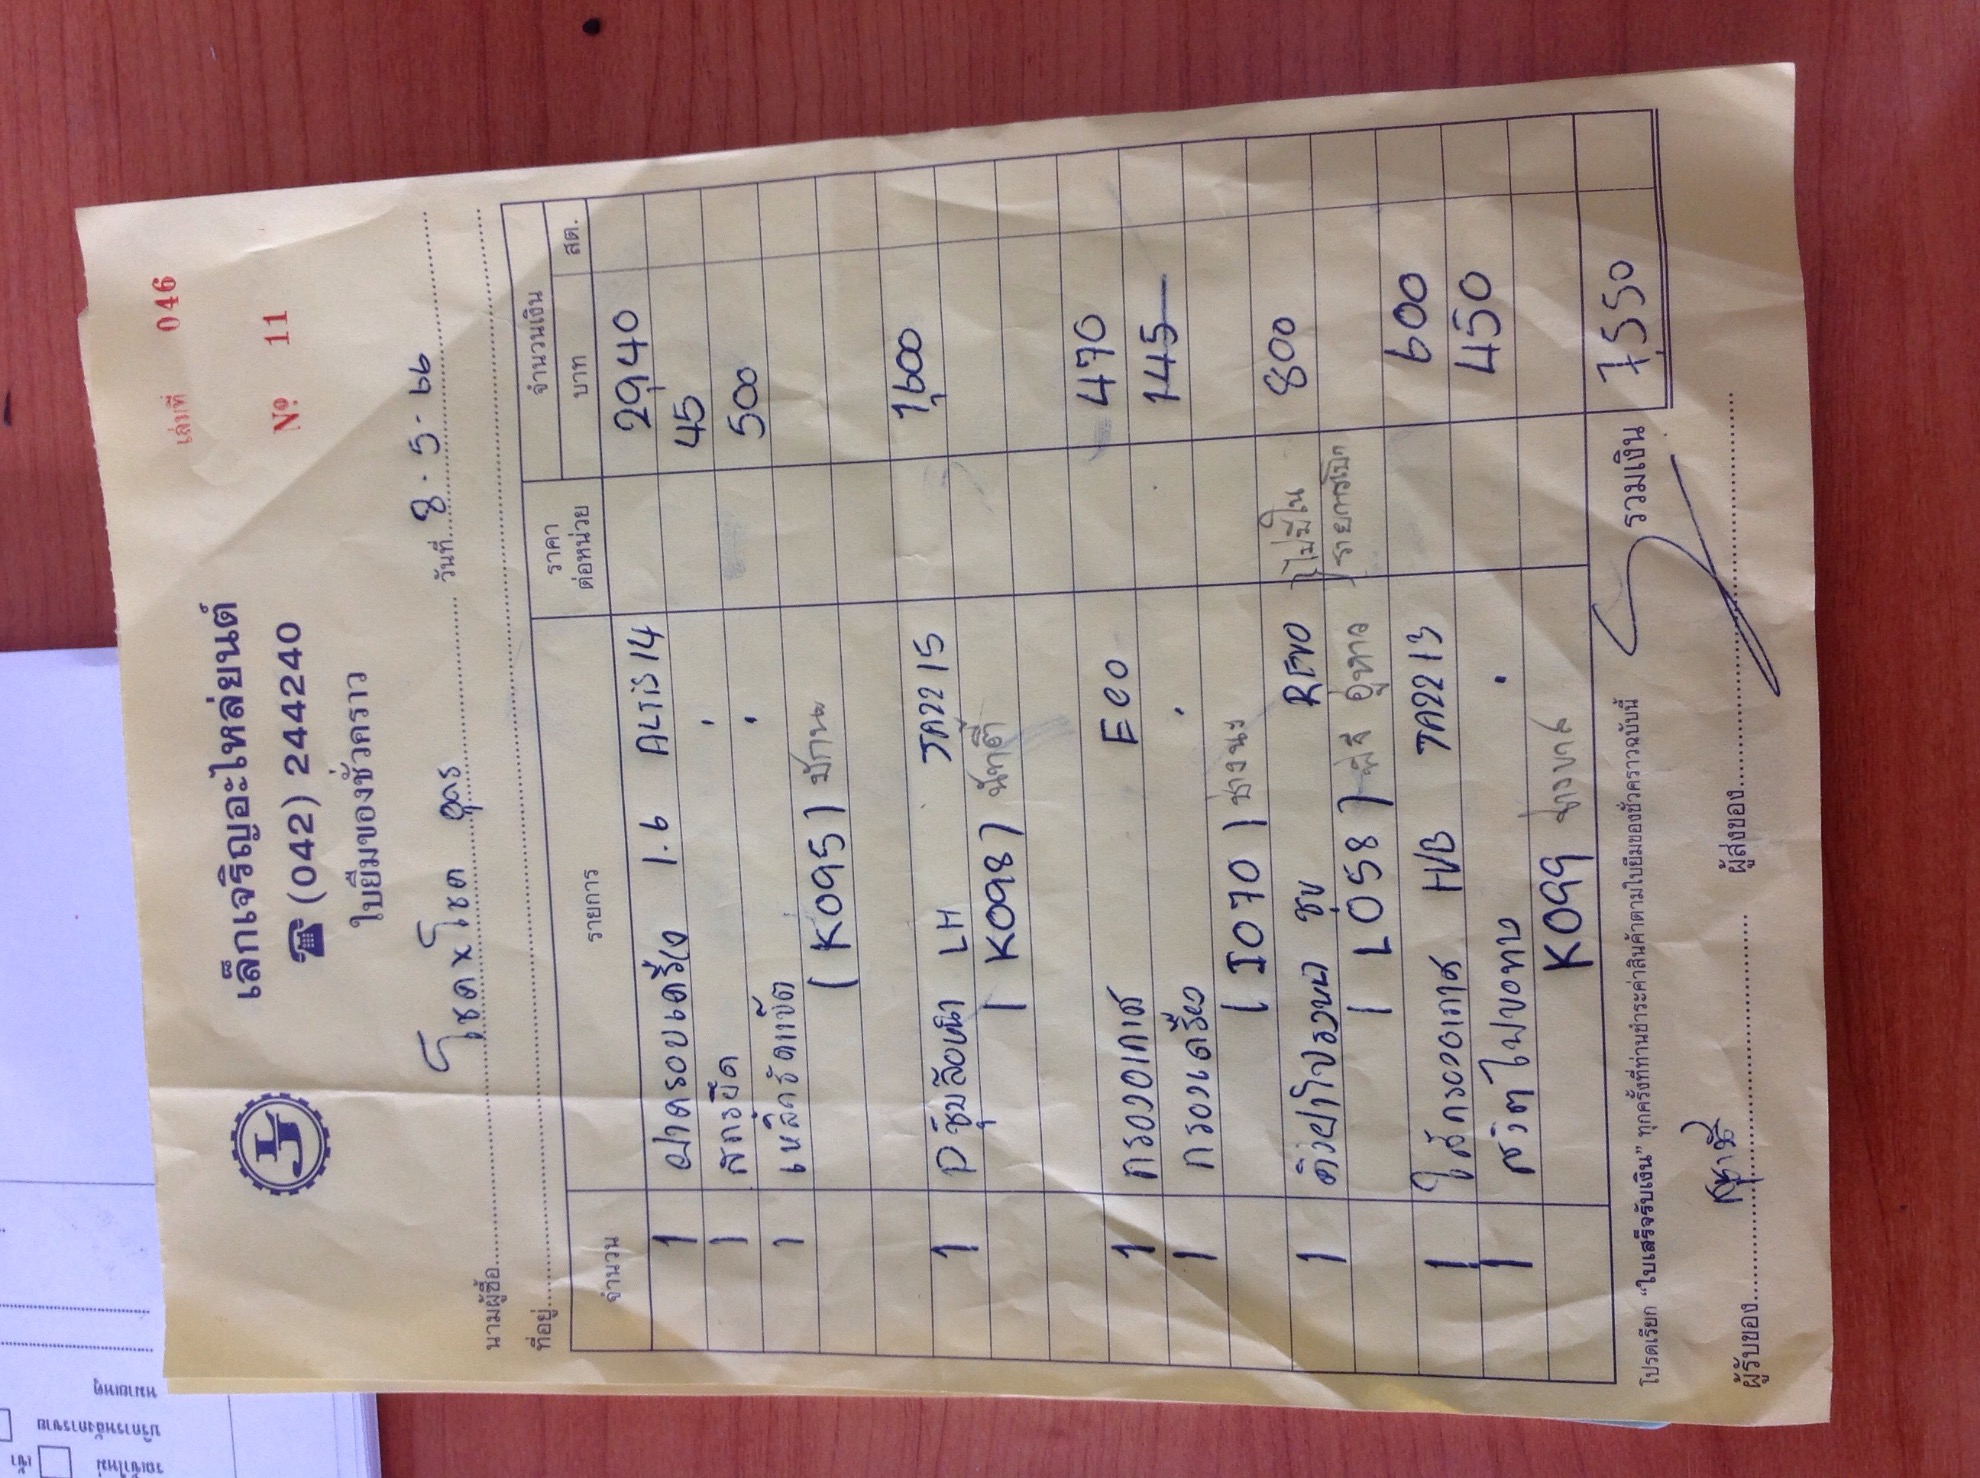 เล่มที่ 046
เล็กเจริญอะไหล่ยนต์
☎ (042) 244240
Nº 11
ใบยืมของชั่วคราว
นามผู้ซื้อ โชคxโชค อุดร วันที่ 8.5.66
ที่อยู่
จำนวน รายการ ราคาต่อหน่วย จำนวนเงิน
บาท สต.
1 ฝาครอบเครื่อง 1.6 ALTIS 14 2,940
1 สักรยึด " 45
1 เหล็กรัดแบ็ต " 500
(K095) ช่าง
1 P ซุ้มล้อหน้า LH JA22 15 1,600
(K098)
1 กรองอากาศ Eco 470
1 กรองเครื่อง " 145
(I070) ช่าง
1 คิ้วฝาโปรงหน้า ชุบ REVO (ไม่มีใน 800
(L058) พี่สี อู่ขาว รายการเบิก
1 ไส้กรองอากาศ H/B JA22 13 600
1 สวิตไฟ " 450
K099
รวมเงิน 7,550
โปรดเรียก "ใบเสร็จรับเงิน" ทุกครั้งที่ท่านชำระค่าสินค้าตามใบยืมของชั่วคราวฉบับนี้
ผู้รับของ ผู้ส่งของ
หมายเหตุ
บริการหลังการขาย